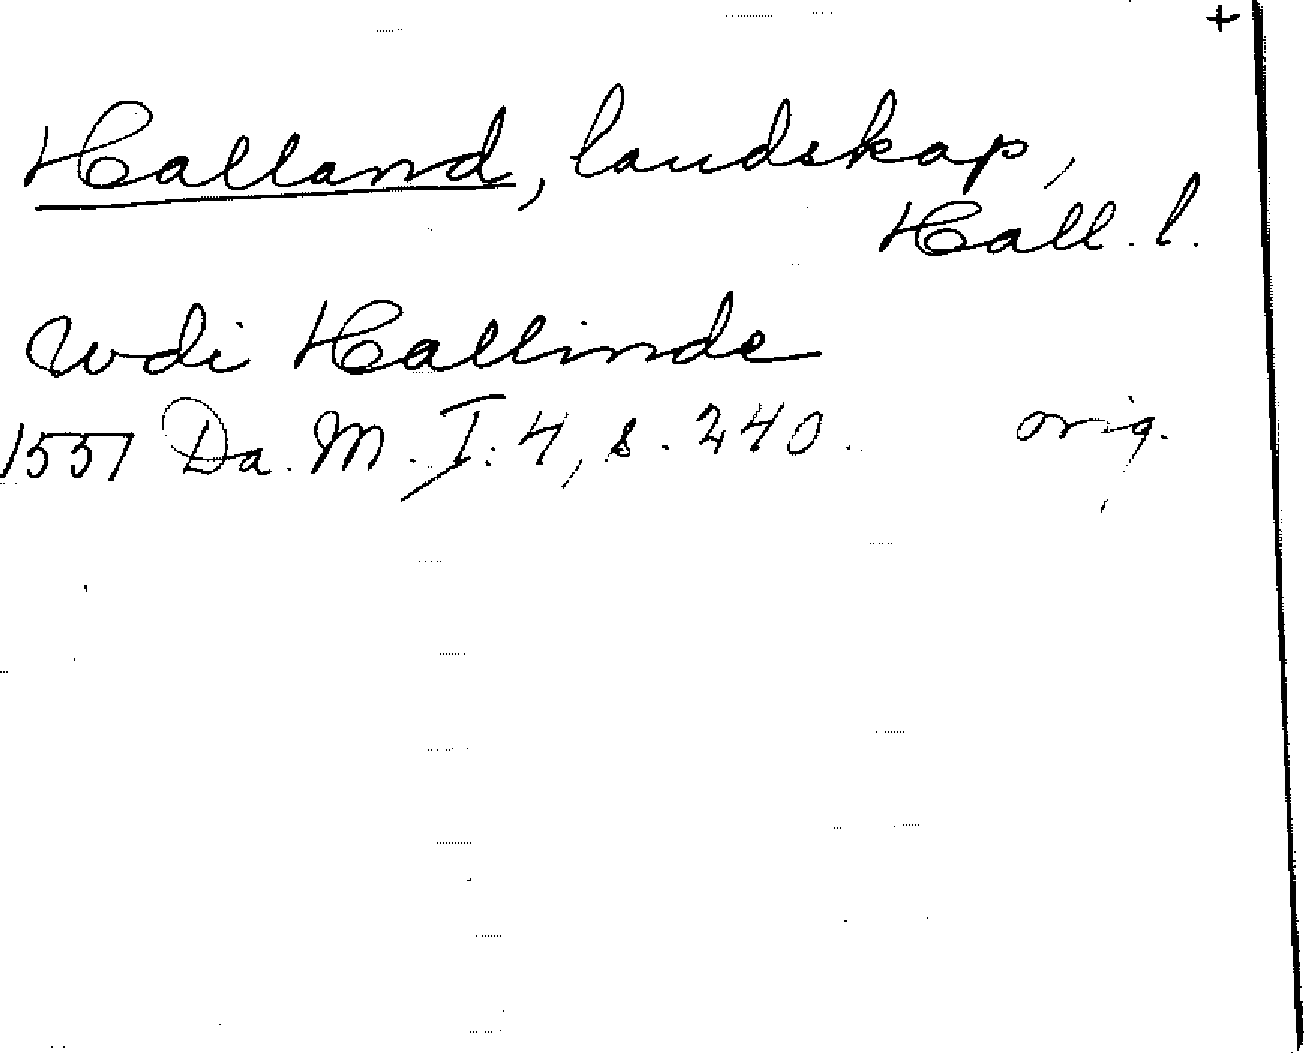 +
Halland, landskap,
Hall. l.
Wdi Hallinde
1557 Da. M. I: 4, s. 240. orig.